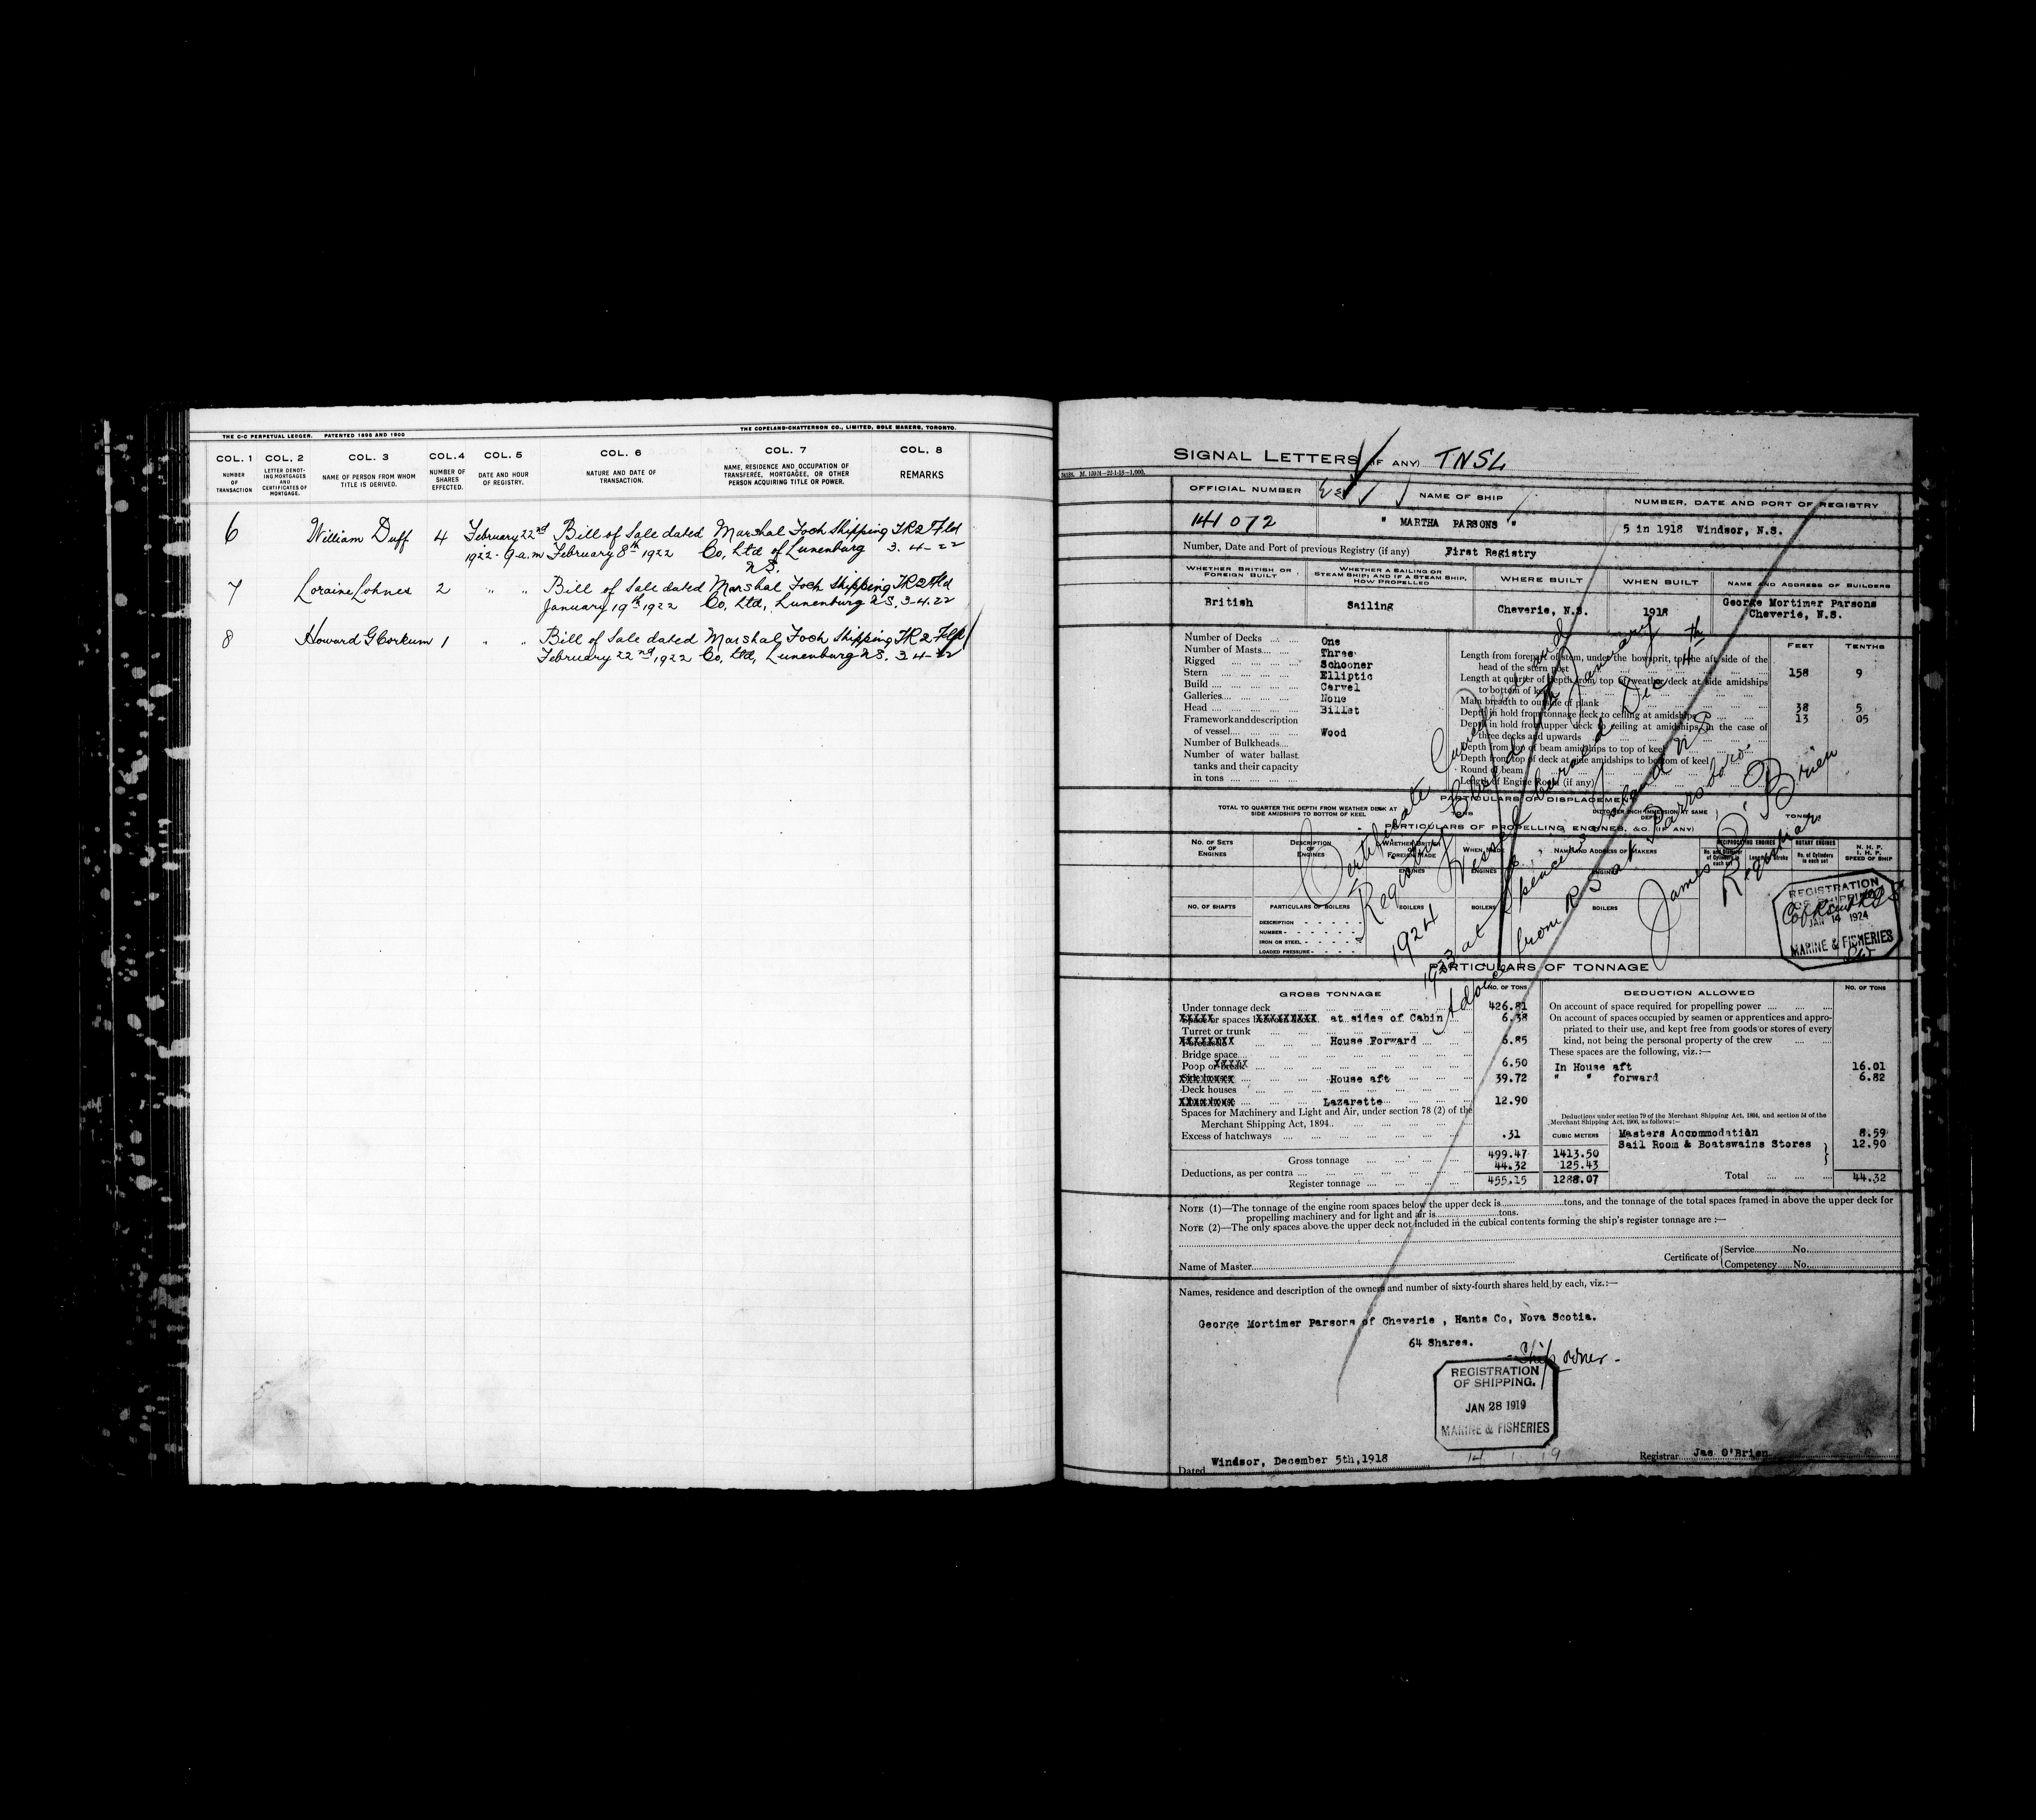 THE C-C PERPETUAL LEDGER. PATENTED 1895 AND 1900
THE COPELAND-CHATTERSON CO., LIMITED, SOLE MAKERS, TORONTO.
COL. 1 COL. 2 COL. 3 COL.4 COL. 5 COL. 6 COL. 7 COL. 8
NUMBER OF TRANSACTION
LETTER DENOT-ING MORTGAGES AND CERTIFICATES OF MORTGAGE.
NAME OF PERSON FROM WHOM TITLE IS DERIVED.
NUMBER OF SHARES EFFECTED.
DATE AND HOUR OF REGISTRY.
NATURE AND DATE OF TRANSACTION.
NAME, RESIDENCE AND OCCUPATION OF TRANSFEREE, MORTGAGEE, OR OTHER PERSON ACQUIRING TITLE OR POWER.
REMARKS
6 William Duff 4 February 22nd Bill of Sale dated Marshal Foch Shipping TR2 Fld
1922 - 9 a.m February 8th 1922 Co, Ltd of Lunenburg 3. 4-22
N.S.
7 Loraine Lohnes 2 " " Bill of Sale dated Marshal Foch Shipping TR2 Fld
January 19th 1922 Co, Ltd, Lunenburg N.S. 3-4.22
8 Howard G Corkum 1 " " Bill of Sale dated Marshal Foch Shipping TR2 Fld
February 22nd 1922 Co, Ltd, Lunenburg N.S. 3-4-22
SIGNAL LETTERS (IF ANY) TNSL
OFFICIAL NUMBER
NAME OF SHIP
NUMBER, DATE AND PORT OF REGISTRY
141072
" MARTHA PARSONS "
5 in 1918 Windsor, N.S.
Number, Date and Port of previous Registry (if any) First Registry
WHETHER BRITISH OR FOREIGN BUILT
WHETHER A SAILING OR STEAM SHIP; AND IF A STEAM SHIP, HOW PROPELLED
WHERE BUILT
WHEN BUILT
NAME AND ADDRESS OF BUILDERS
British
Sailing
Cheverie, N.S.
1918
George Mortimer Parsons
Cheverie, N.S.
Number of Decks One
Number of Masts Three
Rigged Schooner
Stern Elliptic
Build Carvel
Galleries None
Head Billet
Framework and description
of vessel Wood
Number of Bulkheads
Number of water ballast
tanks and their capacity
in tons
FEET TENTHS
Length from forepart of stem, under the bowsprit, to the aft side of the
head of the stern post 158 9
Length at quarter of depth from top of weather deck at side amidships
to bottom of keel
Main breadth to outside of plank 38 5
Depth in hold from tonnage deck to ceiling at amidships 13 05
Depth in hold from upper deck to ceiling at amidships, in the case of
three decks and upwards
Depth from top of beam amidships to top of keel
Depth from top of deck at side amidships to bottom of keel
Round of beam
Length of Engine Room (if any)
PARTICULARS OF DISPLACEMENT
TOTAL TO QUARTER THE DEPTH FROM WEATHER DECK AT
SIDE AMIDSHIPS TO BOTTOM OF KEEL
TONS
DITTO PER INCH IMMERSION AT SAME DEPTH
TONS
PARTICULARS OF PROPELLING ENGINES, &C. (IF ANY)
NO. OF SETS OF ENGINES
DESCRIPTION OF ENGINES
WHETHER BRITISH OR FOREIGN MADE
WHEN MADE
NAME AND ADDRESS OF MAKERS
RECIPROCATING ENGINES
ROTARY ENGINES
No. of Cylinders in each set
N. H. P.
I. H. P.
SPEED OF SHIP
ENGINES
ENGINES
ENGINES
NO. OF SHAFTS
PARTICULARS OF BOILERS
BOILERS
BOILERS
BOILERS
DESCRIPTION
NUMBER
IRON OR STEEL
LOADED PRESSURE
Certificate Cancelled and
Registry Closed January 4th
1924 Vessel burned Dec
1923 at Spencers Island N S
Advice from R S at Parrsboro.
James O'Brien
Registrar
REGISTRATION
OF SHIPPING
JAN 14 1924
MARINE & FISHERIES
PARTICULARS OF TONNAGE
GROSS TONNAGE
NO. OF TONS
DEDUCTION ALLOWED
NO. OF TONS
Under tonnage deck 426.81
or spaces at sides of Cabin 6.38
Turret or trunk
House Forward 6.85
Bridge space
Poop or break 6.50
House aft 39.72
Deck houses
Lazarette 12.90
Spaces for Machinery and Light and Air, under section 78 (2) of the
Merchant Shipping Act, 1894
Excess of hatchways .31
Gross tonnage 499.47 1413.50
Deductions, as per contra 44.32 125.43
Register tonnage 455.15 1288.07
CUBIC METERS
On account of space required for propelling power
On account of spaces occupied by seamen or apprentices and appro-
priated to their use, and kept free from goods or stores of every
kind, not being the personal property of the crew
These spaces are the following, viz.:—
In House aft 16.01
" " forward 6.82
Deductions under section 79 of the Merchant Shipping Act, 1894, and section 54 of the
Merchant Shipping Act, 1906, as follows:—
Masters Accommodation 8.59
Sail Room & Boatswains Stores 12.90
Total 44.32
NOTE (1)—The tonnage of the engine room spaces below the upper deck is tons, and the tonnage of the total spaces framed in above the upper deck for
propelling machinery and for light and air is tons.
NOTE (2)—The only spaces above the upper deck not included in the cubical contents forming the ship's register tonnage are :—
Name of Master
Certificate of Service No.
Competency No.
Names, residence and description of the owners and number of sixty-fourth shares held by each, viz.:—
George Mortimer Parsons of Cheverie , Hants Co, Nova Scotia.
64 Shares.
Ship owner.
REGISTRATION
OF SHIPPING.
JAN 28 1919
MARINE & FISHERIES
14 1 19
Dated Windsor, December 5th,1918
Registrar Jas O'Brien